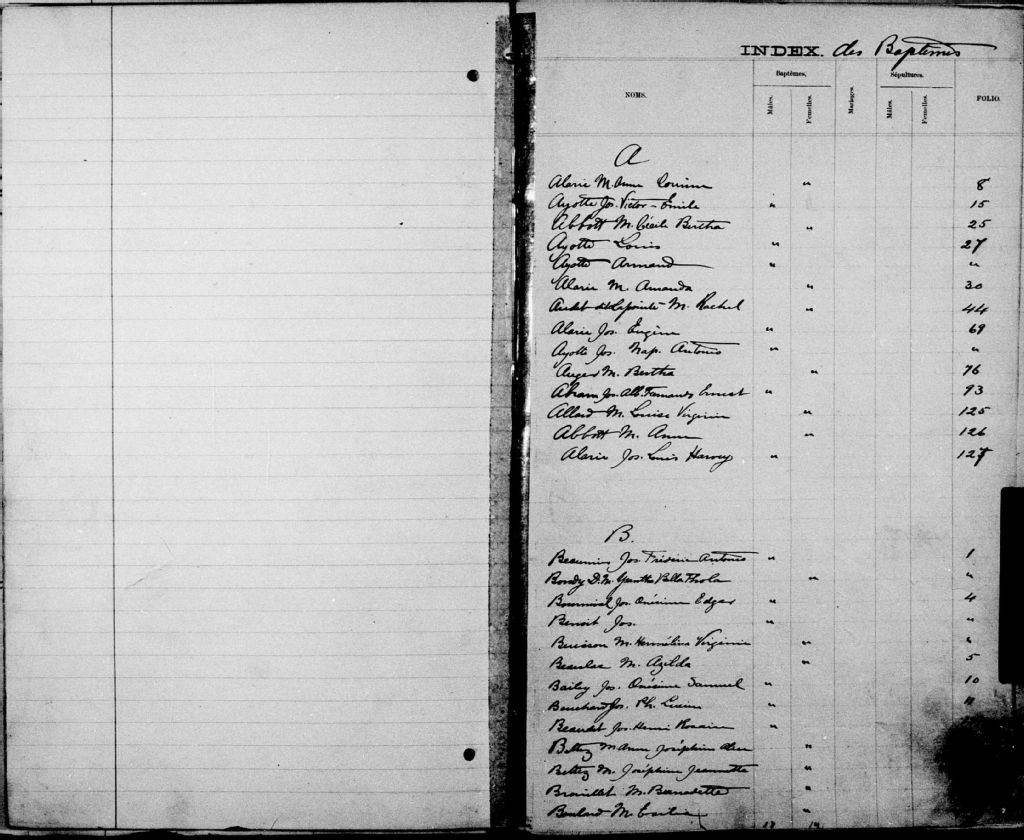 INDEX. des Baptêmes
NOMS. Baptêmes. Mâles. Femelles. Mariages. Sépultures. Mâles. Femelles. FOLIO.
A
Alarie M. Anne Corinne " 8
Ayotte Jos. Victor-Émile " 15
Abbott M. Cécile Bertha " 25
Ayotte Louis " 27
Ayotte Armand " "
Alarie M. Amanda " 30
Audet dit Lapointe M. Rachel " 44
Alarie Jos. Eugène " 69
Ayotte Jos. Nap. Antonio " "
Auger M. Bertha " 76
Abram Jos. Alb. Fernando Ernest " 93
Allard M. Louise Virginie " 125
Abbott M. Anne " 126
Alarie Jos. Louis Harvey " 127
B.
Jos. Antonio " 1
Bondy D. M. " "
Jos. Onésime Edgar " 4
Benoit Jos. " "
Buisson M. Hermélina Virginie " "
Beaulac M. Azilda " 5
Bailey Jos. Onésime Samuel " 10
Bouchard Jos. Ph. Lucien " 11
Beaudet Jos. Henri Rosaire "
Bettez M Anne Joséphine "
Bettez M. Joséphine Jeannette "
Brouillet M. Bernadette "
Boulard M. "